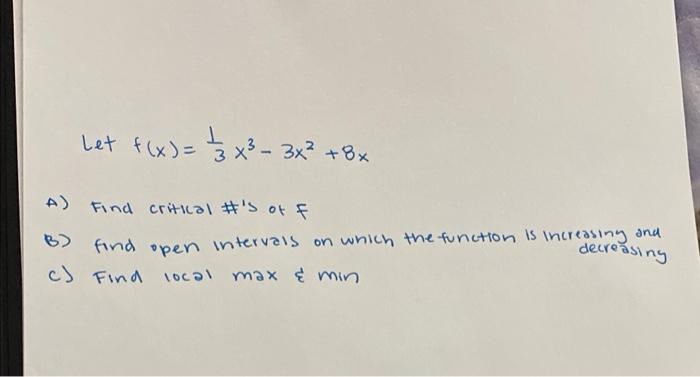 Let f(x) = 1/3 x³ - 3x² + 8x
A) Find critical #'s of f
B) find open intervals on which the function is increasing and decreasing
C) Find local max & min